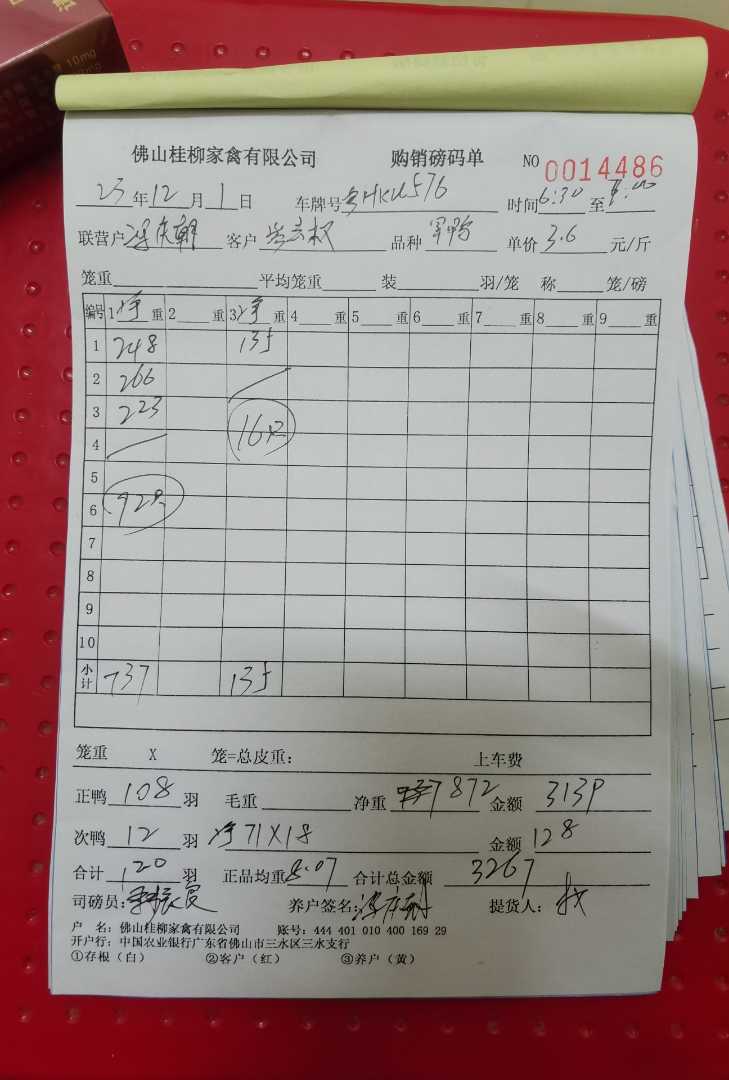 10mg
佛山桂柳家禽有限公司 购销磅码单 NO 0014486
23年12月1日 车牌号 时间6:30至8:00
联营户 客户 品种 单价3.6元/斤
笼重 平均笼重 装 羽/笼 称 笼/磅
编号 1净重 2重 3净重 4重 5重 6重 7重 8重 9重
1 248 135
2 266
3 223
4 16只
5
6 92只
7
8
9
10
小计 737 135
笼重 X 笼=总皮重: 上车费
正鸭108羽 毛重 净重 872 金额 3139
次鸭12羽 净71X18 金额128
合计120羽 正品均重8.07 合计总金额 3267
司磅员: 养户签名: 提货人:
户 名: 佛山桂柳家禽有限公司 账号: 444 401 010 400 169 29
开户行: 中国农业银行广东省佛山市三水区三水支行
①存根(白) ②客户(红) ③养户(黄)